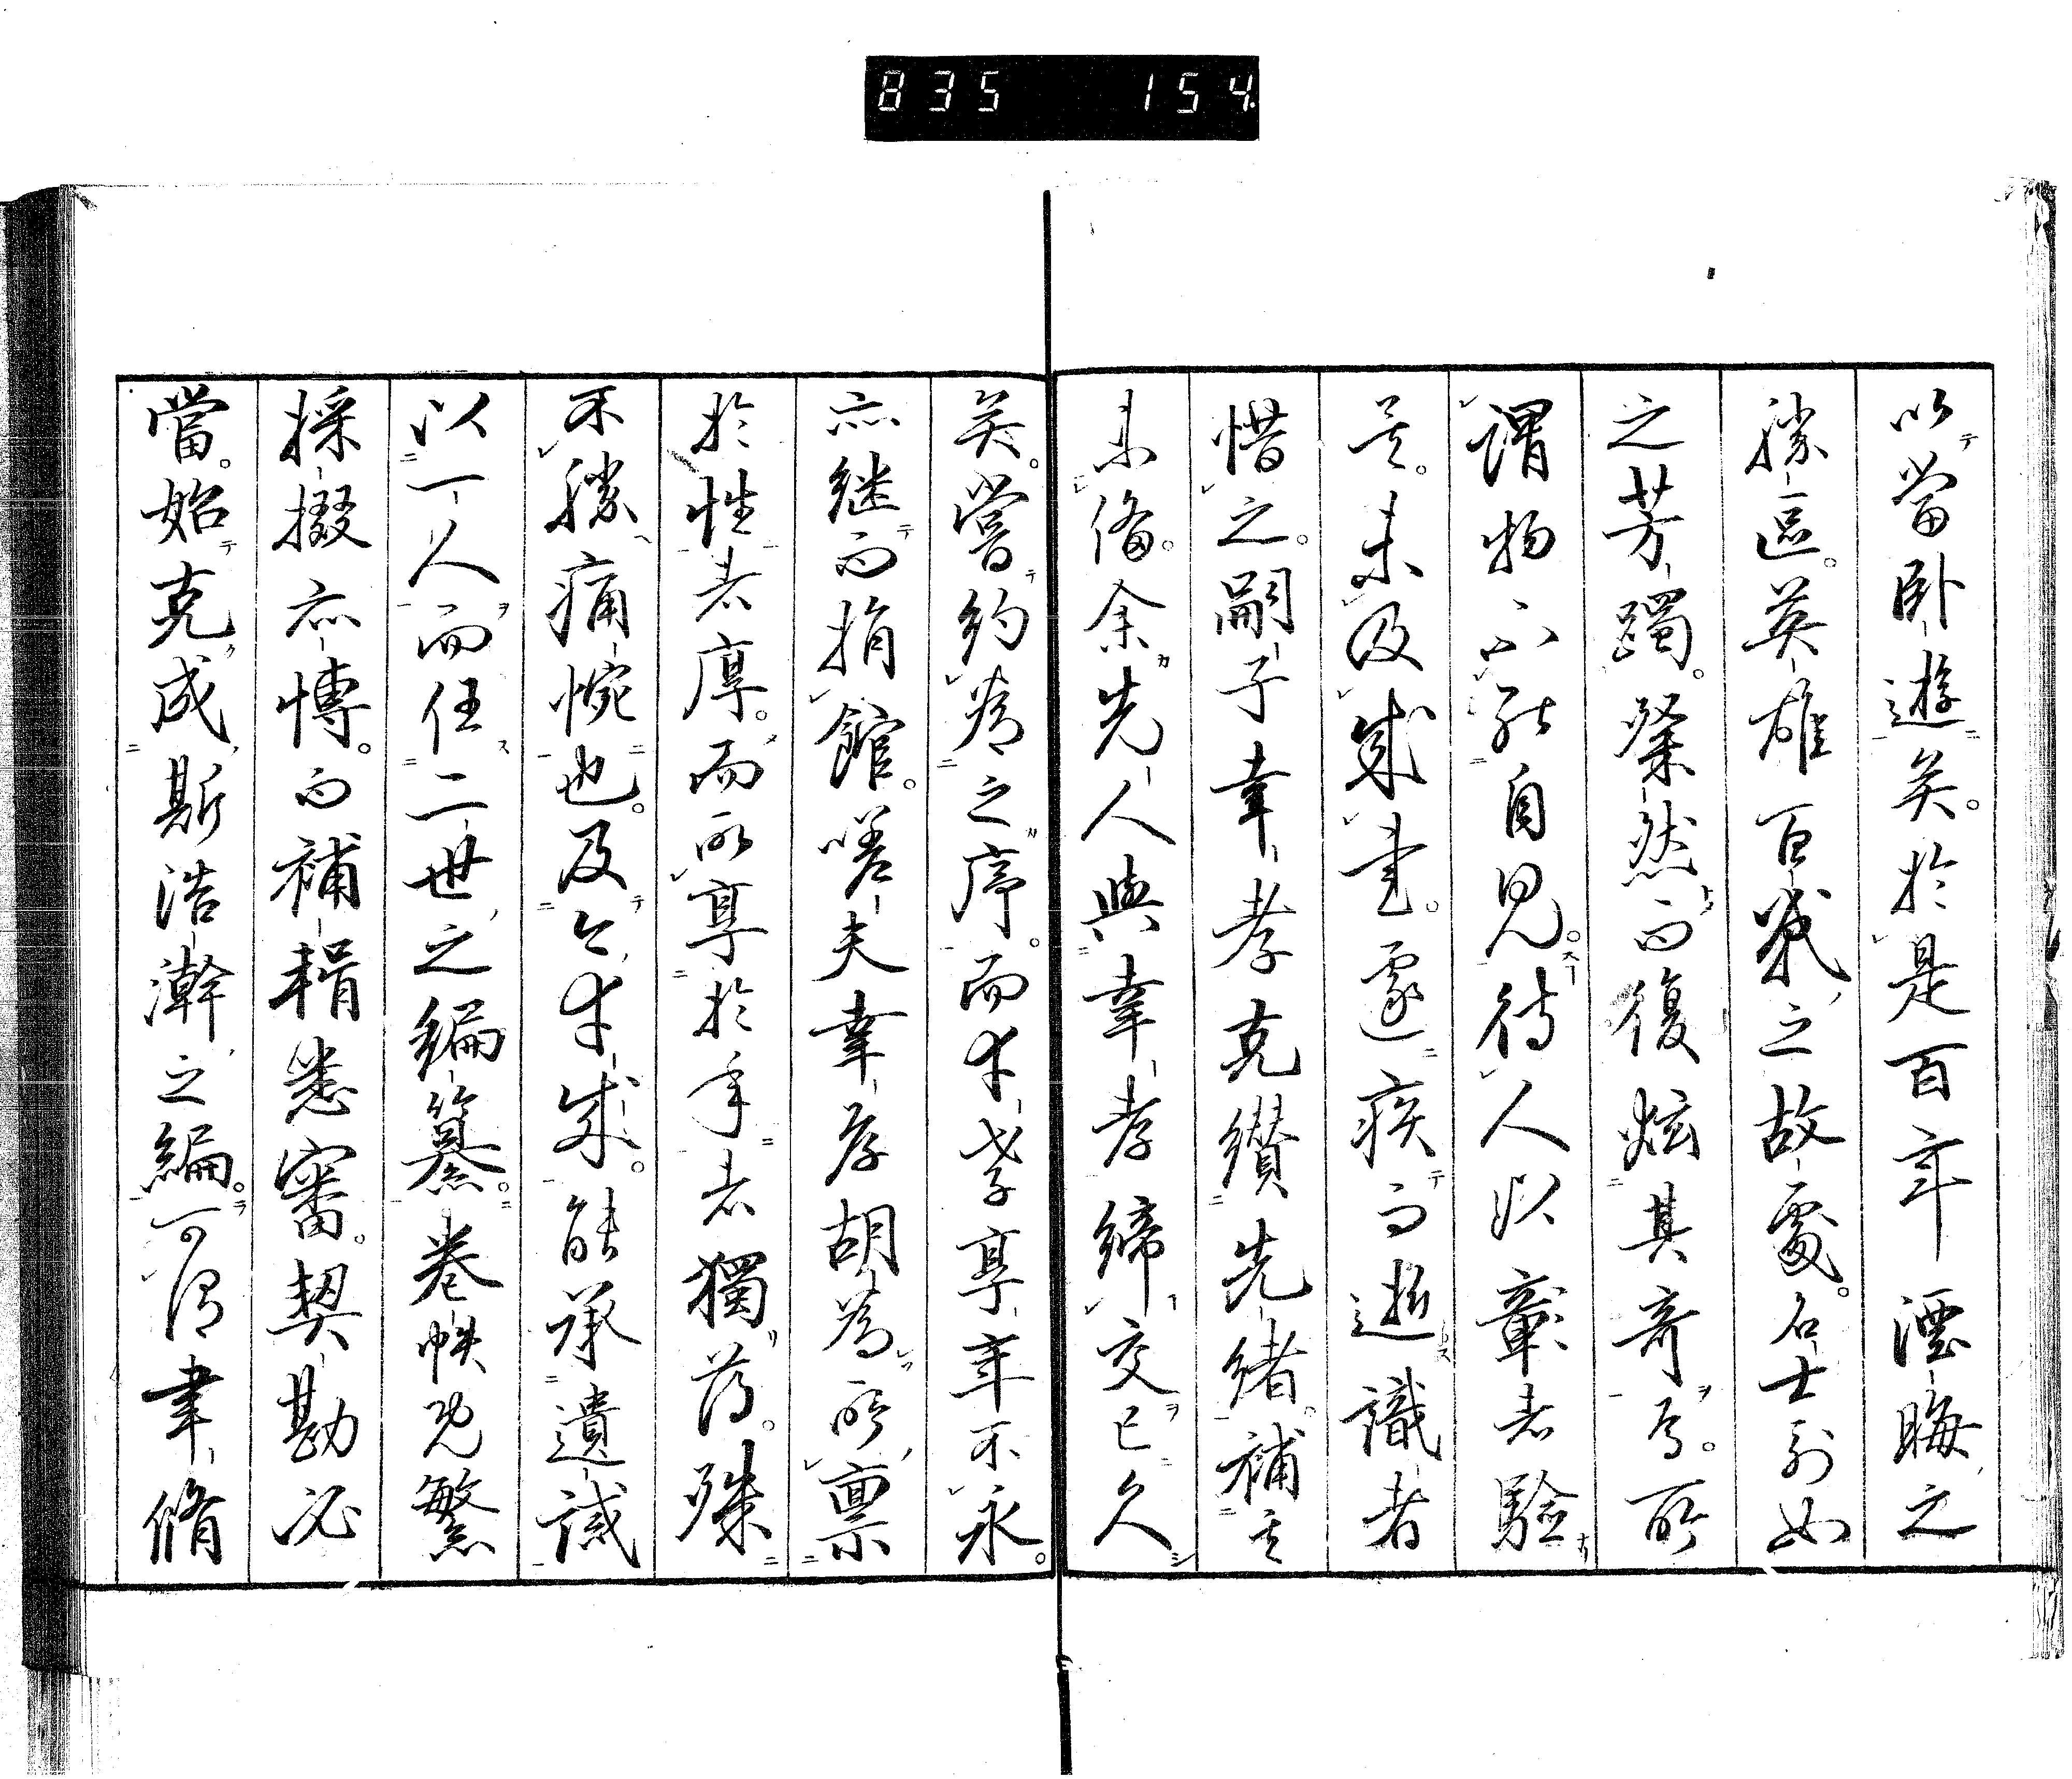 835 154
以當卧遊矣。於是百年湮晦之
勝區。英雄百戰之故處。名士列女
之芳躅。粲然而復炫其奇焉。所
謂物不能自見。待人以彰者驗
矣。未及成書。遽疾而逝識者
惜之。嗣子幸孝克纘先緒。補其
未備。余先人與幸孝締交已久
矣。嘗約為之序。而幸孝享年不永。
亦継而捐館。嗟夫幸孝胡為所稟
於性者厚。而所享於年者獨薄。殊
不勝痛惋也。及今幸成。能承遺誡
以一人而任二世之編纂。卷帙既繁
採掇亦博。而補輯悉審。契勘必
當。始克成斯浩瀚之編。可謂聿脩